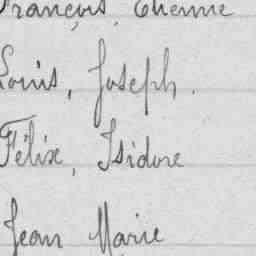 François, Etienne
Louis, Joseph.
Félix, Isidore
Jean Marie